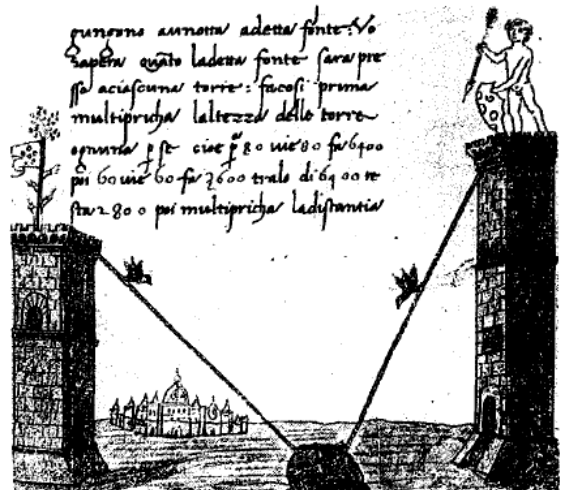 gungono annotta adetta fonte: Vo
sapera quāto ladetta fonte sara pre
sso aciascuna torre: facosi prima
multipricha laltezza delle torre
ognuna p se cioe p 80 uie 80 fa 6400
poi 60 uie 60 fa 3600 tralo di 6400 re
sta 2800 poi multipricha ladistantia